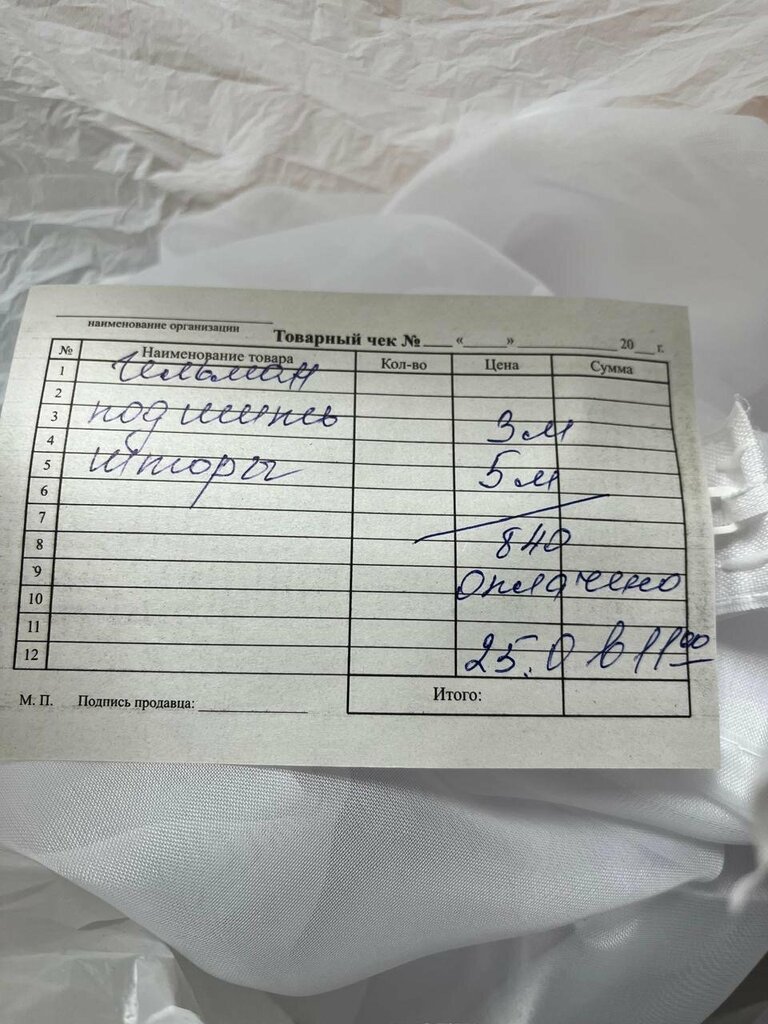 наименование организации
Товарный чек № ____ «____» ____________ 20 __ г.
№ Наименование товара Кол-во Цена Сумма
1 Гильман
2
3 подшить 3м
4
5 шторы 5м
6
7
8 840
9 оплачено
10
11
12 25.0 в 11 00
Итого:
М. П. Подпись продавца: ____________